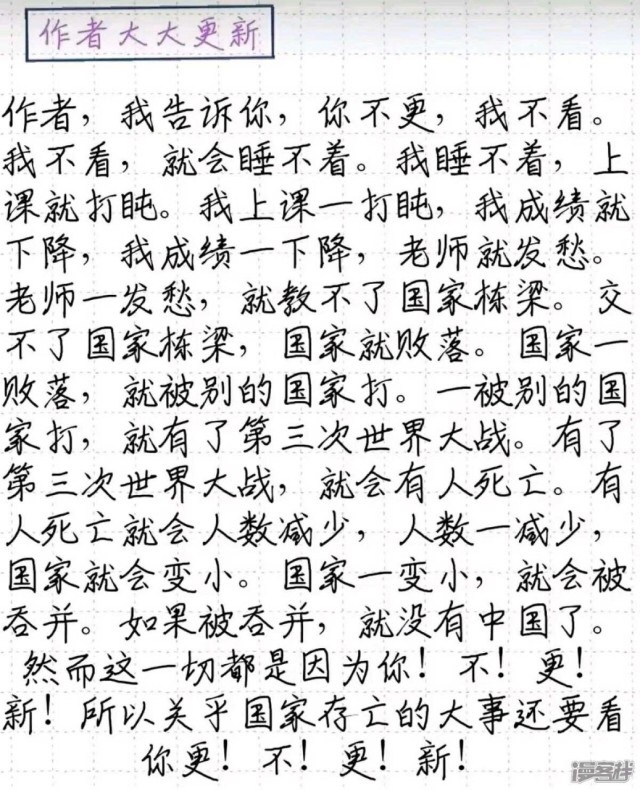 作者大大更新
作者，我告诉你，你不更，我不看。
我不看，就会睡不着。我睡不着，上
课就打盹。我上课一打盹，我成绩就
下降，我成绩一下降，老师就发愁。
老师一发愁，就教不了国家栋梁。交
不了国家栋梁，国家就败落。国家一
败落，就被别的国家打。一被别的国
家打，就有了第三次世界大战。有了
第三次世界大战，就会有人死亡。有
人死亡就会人数减少，人数一减少，
国家就会变小。国家一变小，就会被
吞并。如果被吞并，就没有中国了。
然而这一切都是因为你！不！更！
新！所以关乎国家存亡的大事还要看
你更！不！更！新！
漫客栈